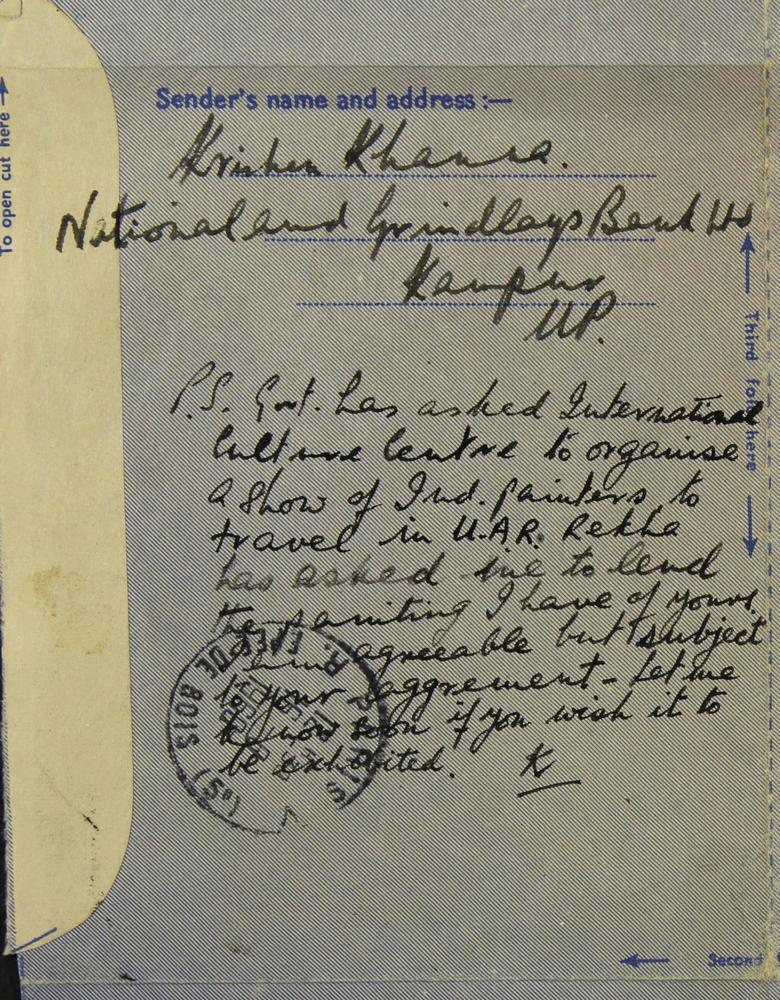 To open cut here
Sender's name and address :—
Krishen Khanna.
National and Grindlays Bank Ltd
Kanpur
U.P.
Third fold here
P.S. Govt. has asked International
Culture Centre to organise
a show of Ind. painters to
travel in U.A.R. Rekha
has asked me to lend
the painting I have of yours.
I am agreeable but subject
to your aggrement - Let me
know soon if you wish it to
be exhibited. K
PARIS
R. EPÉE DE BOIS
(5e)
Second